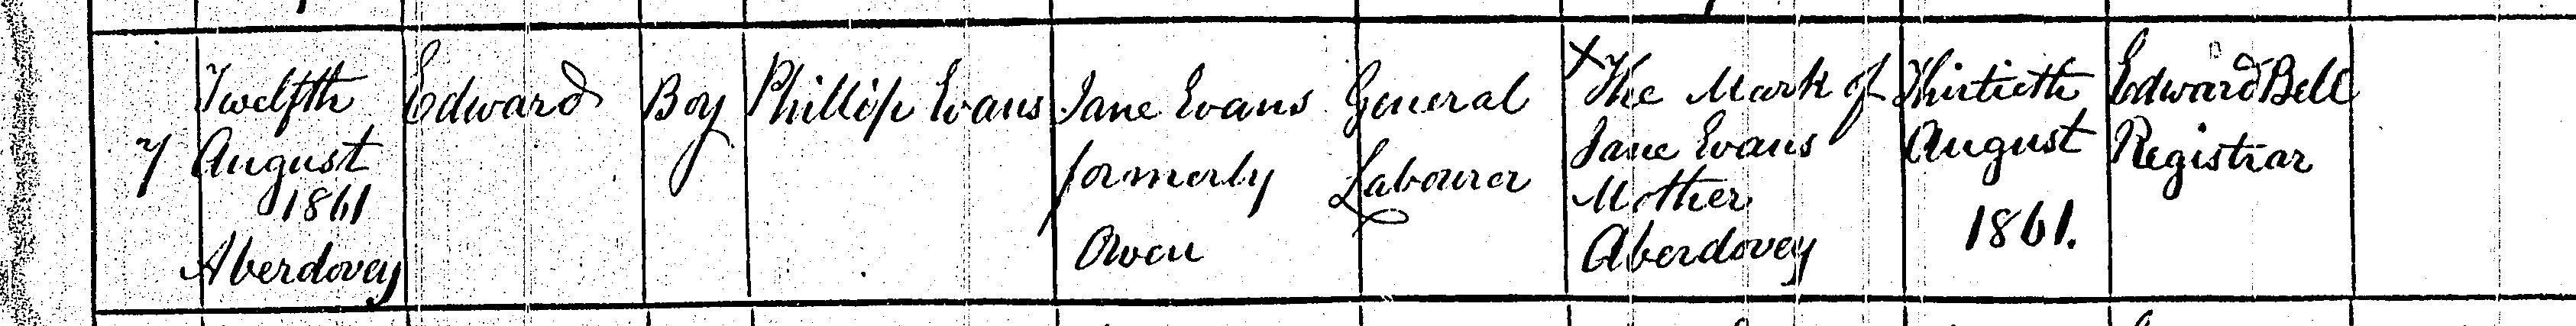 7
Twelfth
August
1861
Aberdovey
Edward
Boy
Phillip Evans
Jane Evans
formerly
Owen
General
Labourer
X The Mark of
Jane Evans
Mother
Aberdovey
Thirtieth
August
1861.
Edward Bell
Registrar